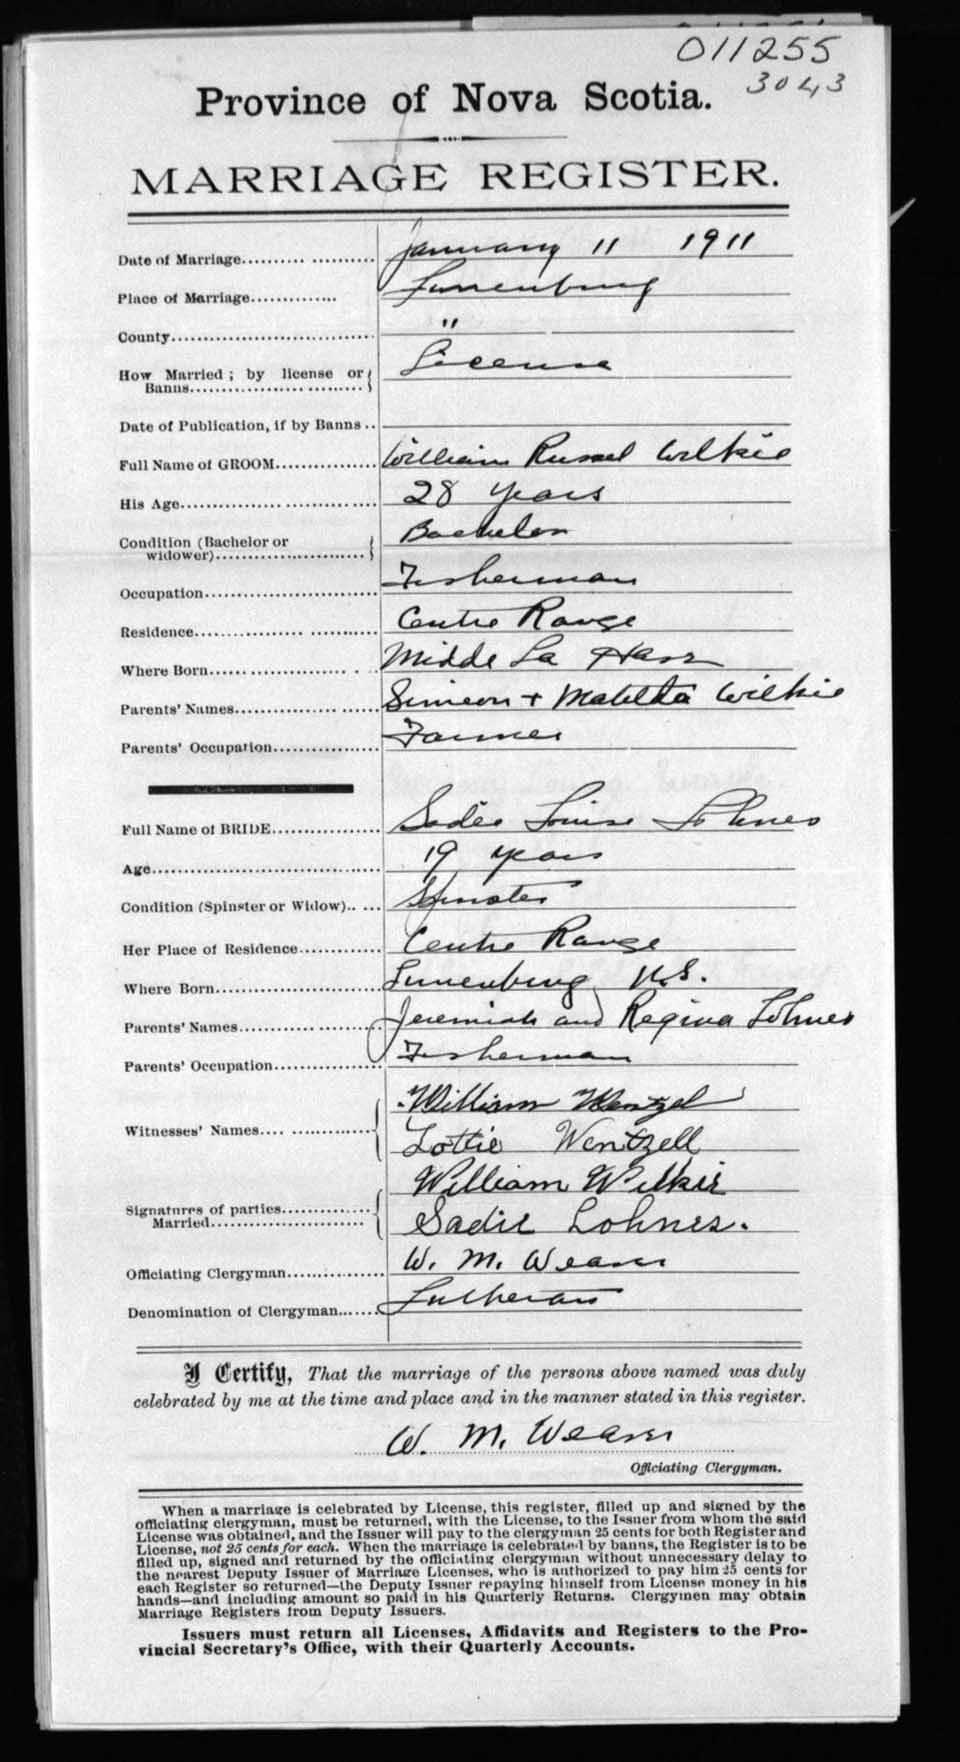 011255
3043
Province of Nova Scotia.
MARRIAGE REGISTER.
Date of Marriage.......... January 11 1911
Place of Marriage.......... Lunenburg
County.......... "
How Married; by license or Banns.......... License
Date of Publication, if by Banns ..
Full Name of GROOM.......... William Russel Wilkie
His Age.......... 28 years
Condition (Bachelor or widower).......... Bachelor
Occupation.......... Fisherman
Residence.......... Centre Range
Where Born.......... Midde La Have
Parents' Names.......... Simeon + Matilda Wilkie
Parents' Occupation.......... Farmer
Full Name of BRIDE.......... Sadie Louise Lohnes
Age.......... 19 years
Condition (Spinster or Widow).. ... Spinster
Her Place of Residence.......... Centre Range
Where Born.......... Lunenburg N.S.
Parents' Names.......... Jeremiah and Regina Lohnes
Parents' Occupation.......... Fisherman
William Wentzel
Witnesses' Names.... .......... Lottie Wentzell
William Wilkie
Signatures of parties Married.......... Sadie Lohnes.
Officiating Clergyman.......... W. M. Weaver
Denomination of Clergyman...... Lutheran
I Certify, That the marriage of the persons above named was duly
celebrated by me at the time and place and in the manner stated in this register.
W. M. Weaver
Officiating Clergyman.
When a marriage is celebrated by License, this register, filled up and signed by the
officiating clergyman, must be returned, with the License, to the Issuer from whom the said
License was obtained, and the Issuer will pay to the clergyman 25 cents for both Register and
License, not 25 cents for each. When the marriage is celebrated by banns, the Register is to be
filled up, signed and returned by the officiating clergyman without unnecessary delay to
the nearest Deputy Issuer of Marriage Licenses, who is authorized to pay him 25 cents for
each Register so returned—the Deputy Issuer repaying himself from License money in his
hands—and including amount so paid in his Quarterly Returns. Clergymen may obtain
Marriage Registers from Deputy Issuers.
Issuers must return all Licenses, Affidavits and Registers to the Pro-
vincial Secretary's Office, with their Quarterly Accounts.